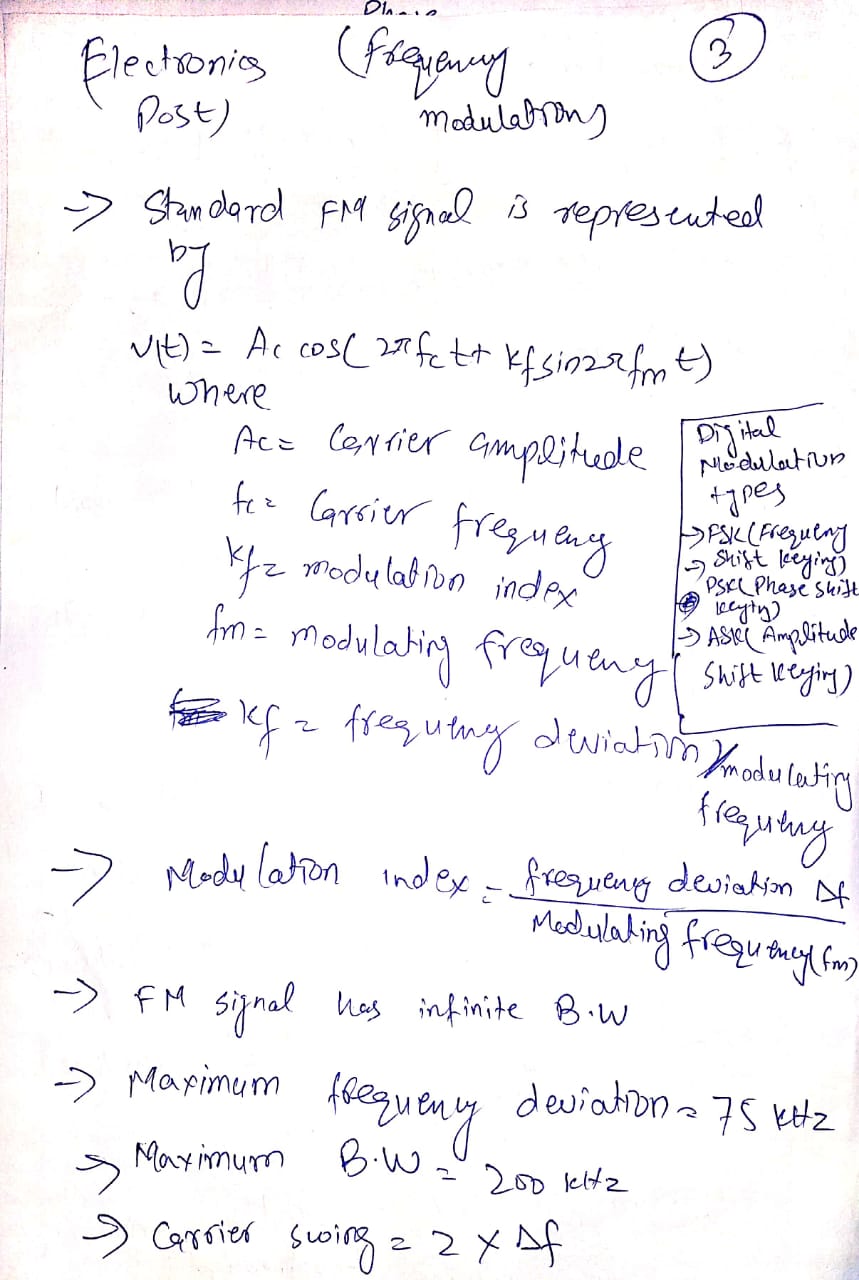 Electronics (frequency ③
Post) modulations
→ Standard FM signal is represented
by
v(t) = Ac cos( 2πfct + kf sin2πfm t)
where
Ac = Carrier amplitude
fc = Carrier frequency
kf = modulation index
fm = modulating frequency
kf = frequency deviation / modulating
frequency
Digital
Modulation
types
→ FSK (Frequency
Shift keying)
→ PSK( Phase shift
keying)
→ ASK( Amplitude
Shift keying)
→ Modulation index = frequency deviation Δf
Modulating frequency(fm)
→ FM signal has infinite B.W
→ Maximum frequency deviation = 75 kHz
→ Maximum B.W = 200 kHz
→ Carrier swing = 2 × Δf